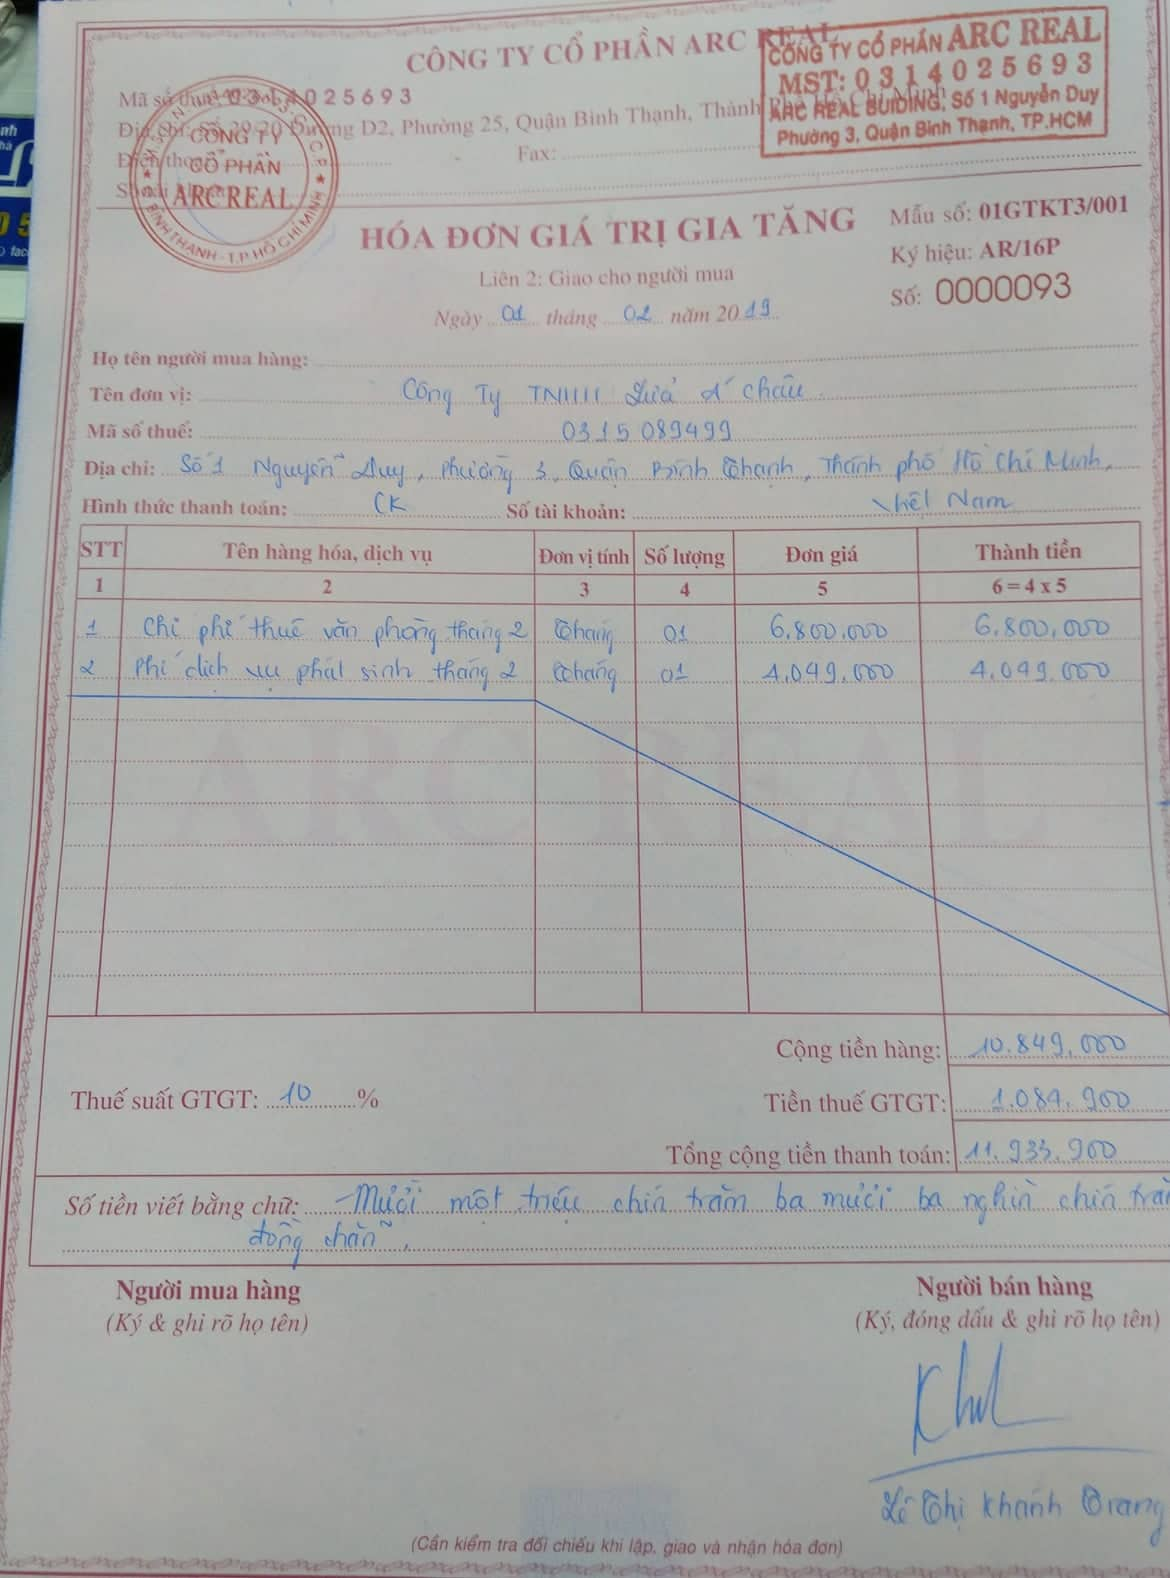 CÔNG TY CỔ PHẦN ARC REAL
CÔNG TY CỔ PHẦN ARC REAL
MST: 0314025693
ARC REAL BUIDING, Số 1 Nguyễn Duy
Phường 3, Quận Bình Thạnh, TP.HCM
Mã số thuế: 0314025693
Đường D2, Phường 25, Quận Bình Thạnh, Thành
Fax:
CÔNG TY
CỔ PHẦN
ARC REAL
BÌNH THẠNH - T.P HỒ CHÍ MINH
HÓA ĐƠN GIÁ TRỊ GIA TĂNG
Mẫu số: 01GTKT3/001
Liên 2: Giao cho người mua
Ký hiệu: AR/16P
Ngày 01 tháng 02 năm 2019
Số: 0000093
Họ tên người mua hàng:
Tên đơn vị: Công Ty TNHH Lửa Á Châu
Mã số thuế: 0315089499
Địa chỉ: Số 1 Nguyễn Duy, Phường 3, Quận Bình Thạnh, Thành phố Hồ Chí Minh,
Việt Nam
Hình thức thanh toán: CK Số tài khoản:
STT Tên hàng hóa, dịch vụ Đơn vị tính Số lượng Đơn giá Thành tiền
1 2 3 4 5 6 = 4 x 5
1 Chi phí thuê văn phòng tháng 2 Tháng 01 6.800.000 6.800.000
2 Phí dịch vụ phát sinh tháng 2 Tháng 01 4.049.000 4.049.000
ARC REAL
Cộng tiền hàng: 10.849.000
Thuế suất GTGT: 10 % Tiền thuế GTGT: 1.084.900
Tổng cộng tiền thanh toán: 11.933.900
Số tiền viết bằng chữ: Mười một triệu chín trăm ba mươi ba nghìn chín tră
đồng chẵn.
Người mua hàng Người bán hàng
(Ký & ghi rõ họ tên) (Ký, đóng dấu & ghi rõ họ tên)
Lê Thị Khánh Trang
(Cần kiểm tra đối chiếu khi lập, giao và nhận hóa đơn)